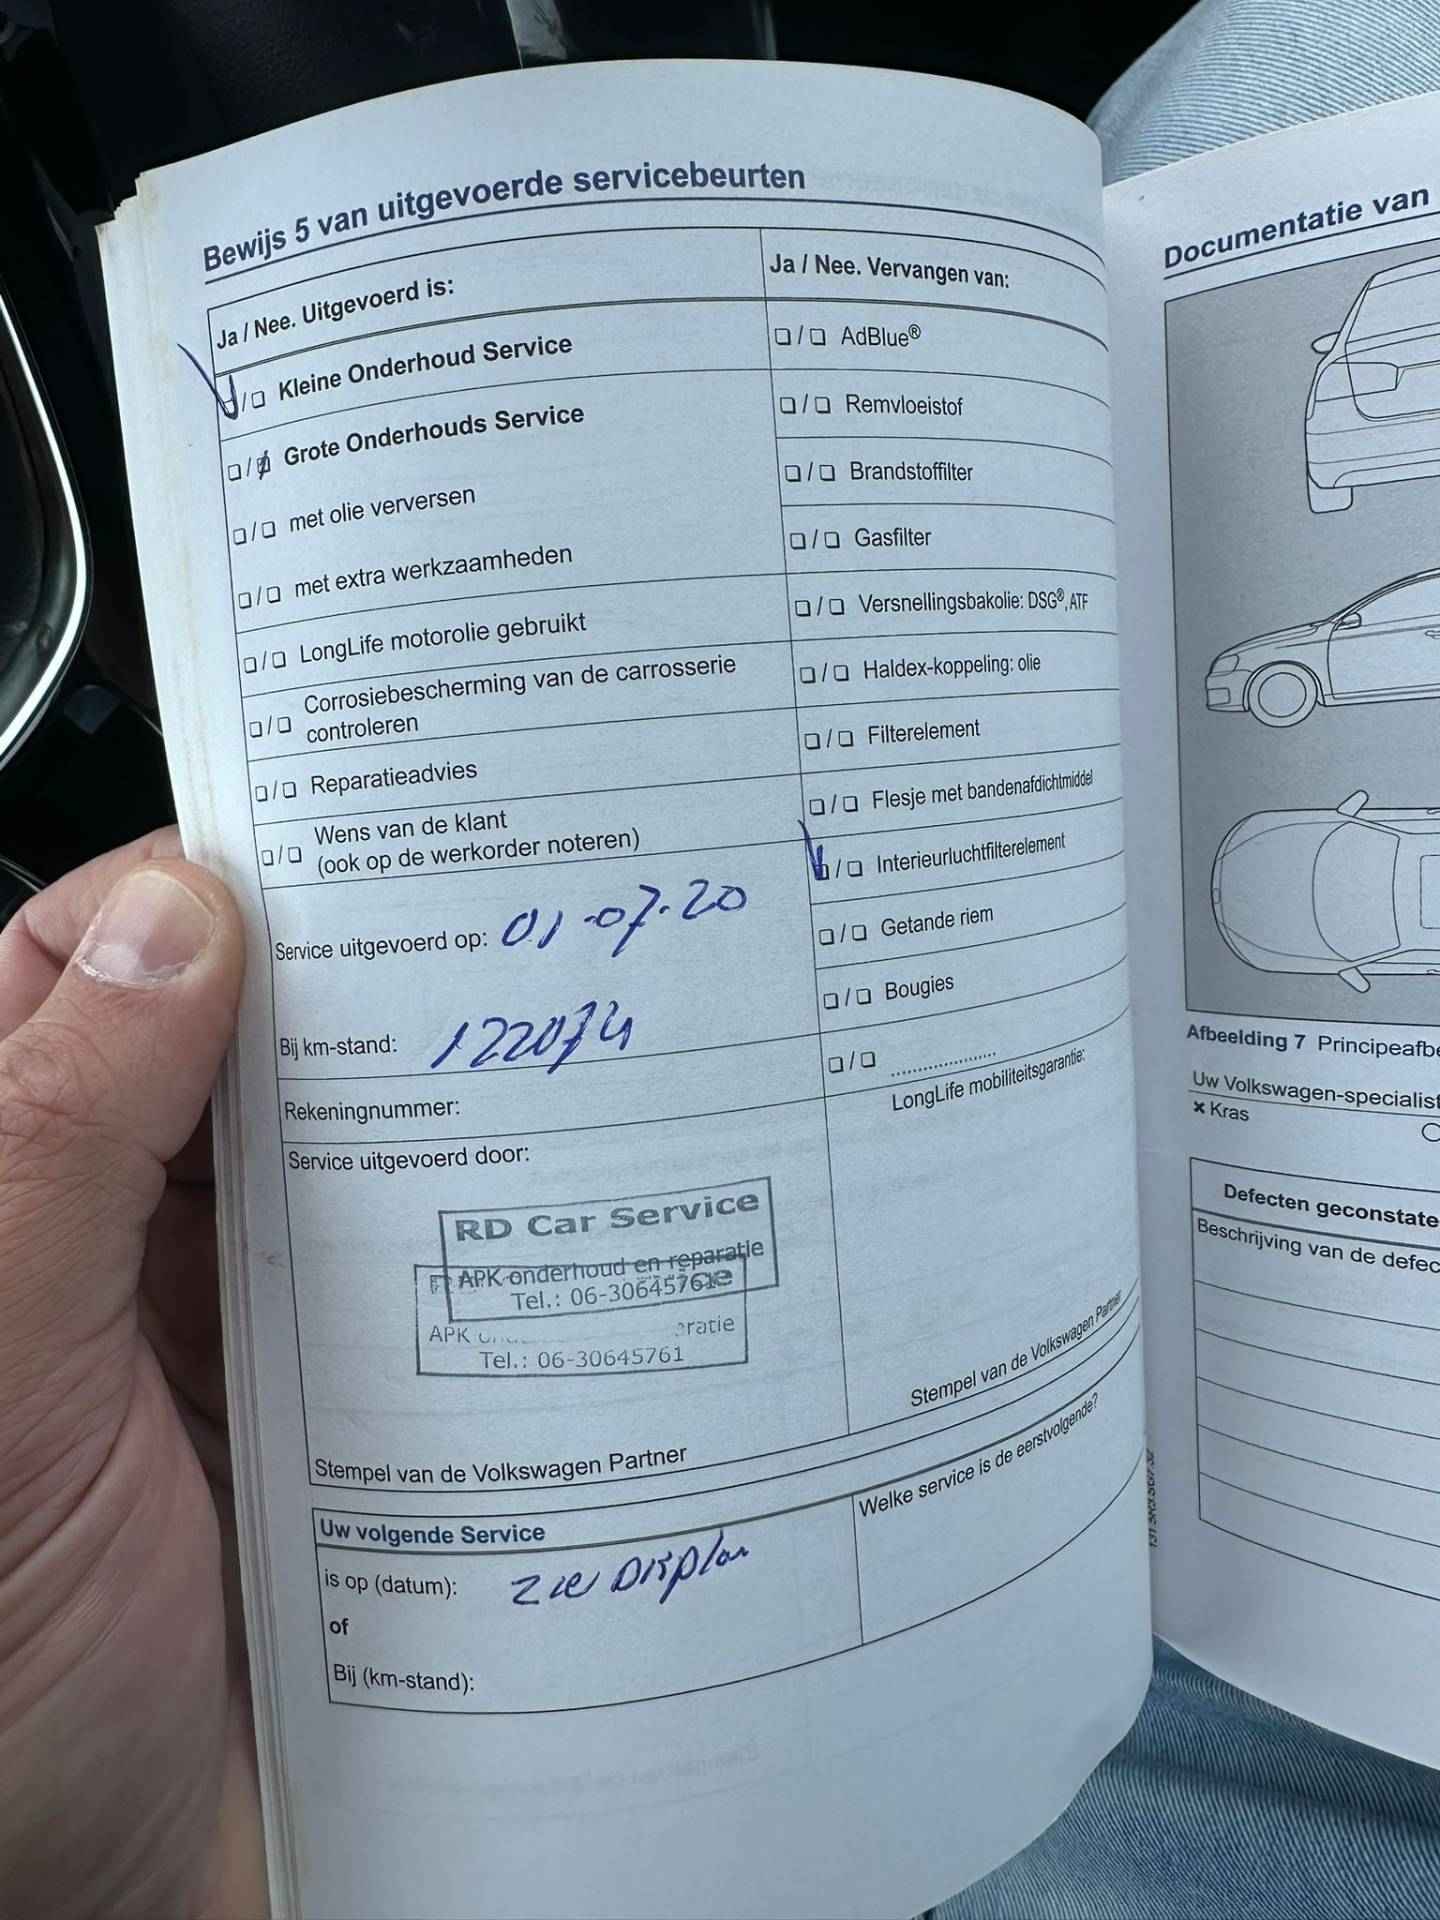 Bewijs 5 van uitgevoerde servicebeurten
Ja / Nee. Uitgevoerd is:
❏/❏ Kleine Onderhoud Service
❏/❏ Grote Onderhouds Service
❏/❏ met olie verversen
❏/❏ met extra werkzaamheden
❏/❏ LongLife motorolie gebruikt
❏/❏ Corrosiebescherming van de carrosserie
controleren
❏/❏ Reparatieadvies
❏/❏ Wens van de klant
(ook op de werkorder noteren)
Service uitgevoerd op: 01-07-20
Bij km-stand: 122074
Rekeningnummer:
Service uitgevoerd door:
RD Car Service
APK onderhoud en reparatie
Tel.: 06-30645761
APK
Tel.: 06-30645761
Stempel van de Volkswagen Partner
Ja / Nee. Vervangen van:
❏/❏ AdBlue®
❏/❏ Remvloeistof
❏/❏ Brandstoffilter
❏/❏ Gasfilter
❏/❏ Versnellingsbakolie: DSG®, ATF
❏/❏ Haldex-koppeling: olie
❏/❏ Filterelement
❏/❏ Flesje met bandenafdichtmiddel
❏/❏ Interieurluchtfilterelement
❏/❏ Getande riem
❏/❏ Bougies
❏/❏ .....................
LongLife mobiliteitsgarantie:
Stempel van de Volkswagen Partner
Uw volgende Service
is op (datum): zie Display
of
Bij (km-stand):
Welke service is de eerstvolgende?
Documentatie van
Afbeelding 7 Principeafbe
Uw Volkswagen-specialist
× Kras
Defecten geconstate
Beschrijving van de defec